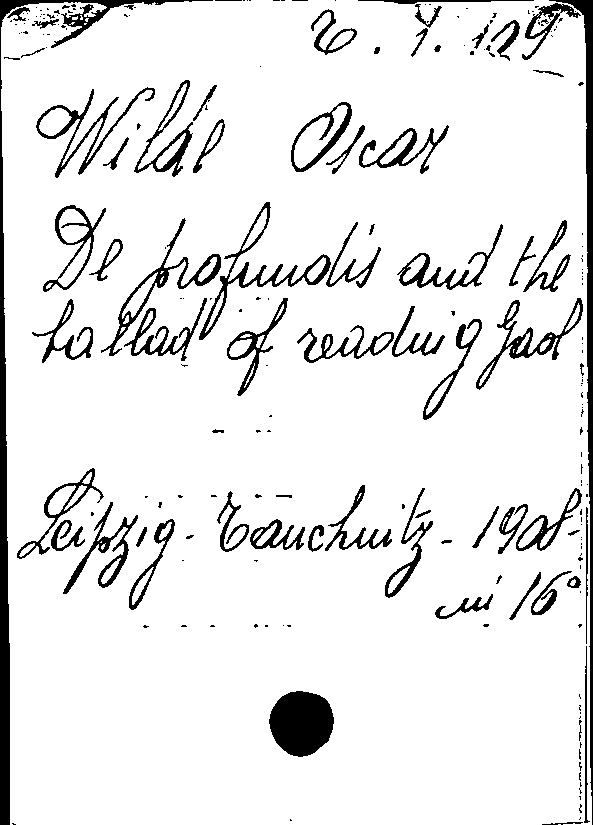 Wilde Oscar
De profundis and the
ballad of reading Gaol
Leipzig - Tauchnitz - 1908 -
in 16°